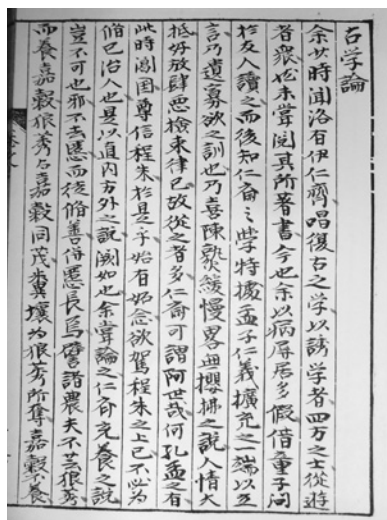 古学論
余少時聞洛有伊仁齊唱復古之学以誘学者四方之士從遊
者衆然未嘗閲其所著書今也余以病屏居多假借童子問
於友人讀之而後知仁斎之学特據孟子仁義擴充之一端以立
言乃遺寡欲之訓也乃喜陳艱緩慢畧無攖拂之説人情大
抵好放肆悪検束律己故從之者多仁斎可謂阿世哉何孔孟之有
此時闔国尊信程朱於是乎始有妬念欲駕程朱之上已不必為
脩己治人也是以直内方外之説闕如也余嘗論之仁斎充養之説
豈不可也邪不去悪而後脩善併悪長焉譬諸農夫不芸狼莠
而養嘉穀狼莠与嘉穀同茂糞壤為狼莠所奪嘉穀不食